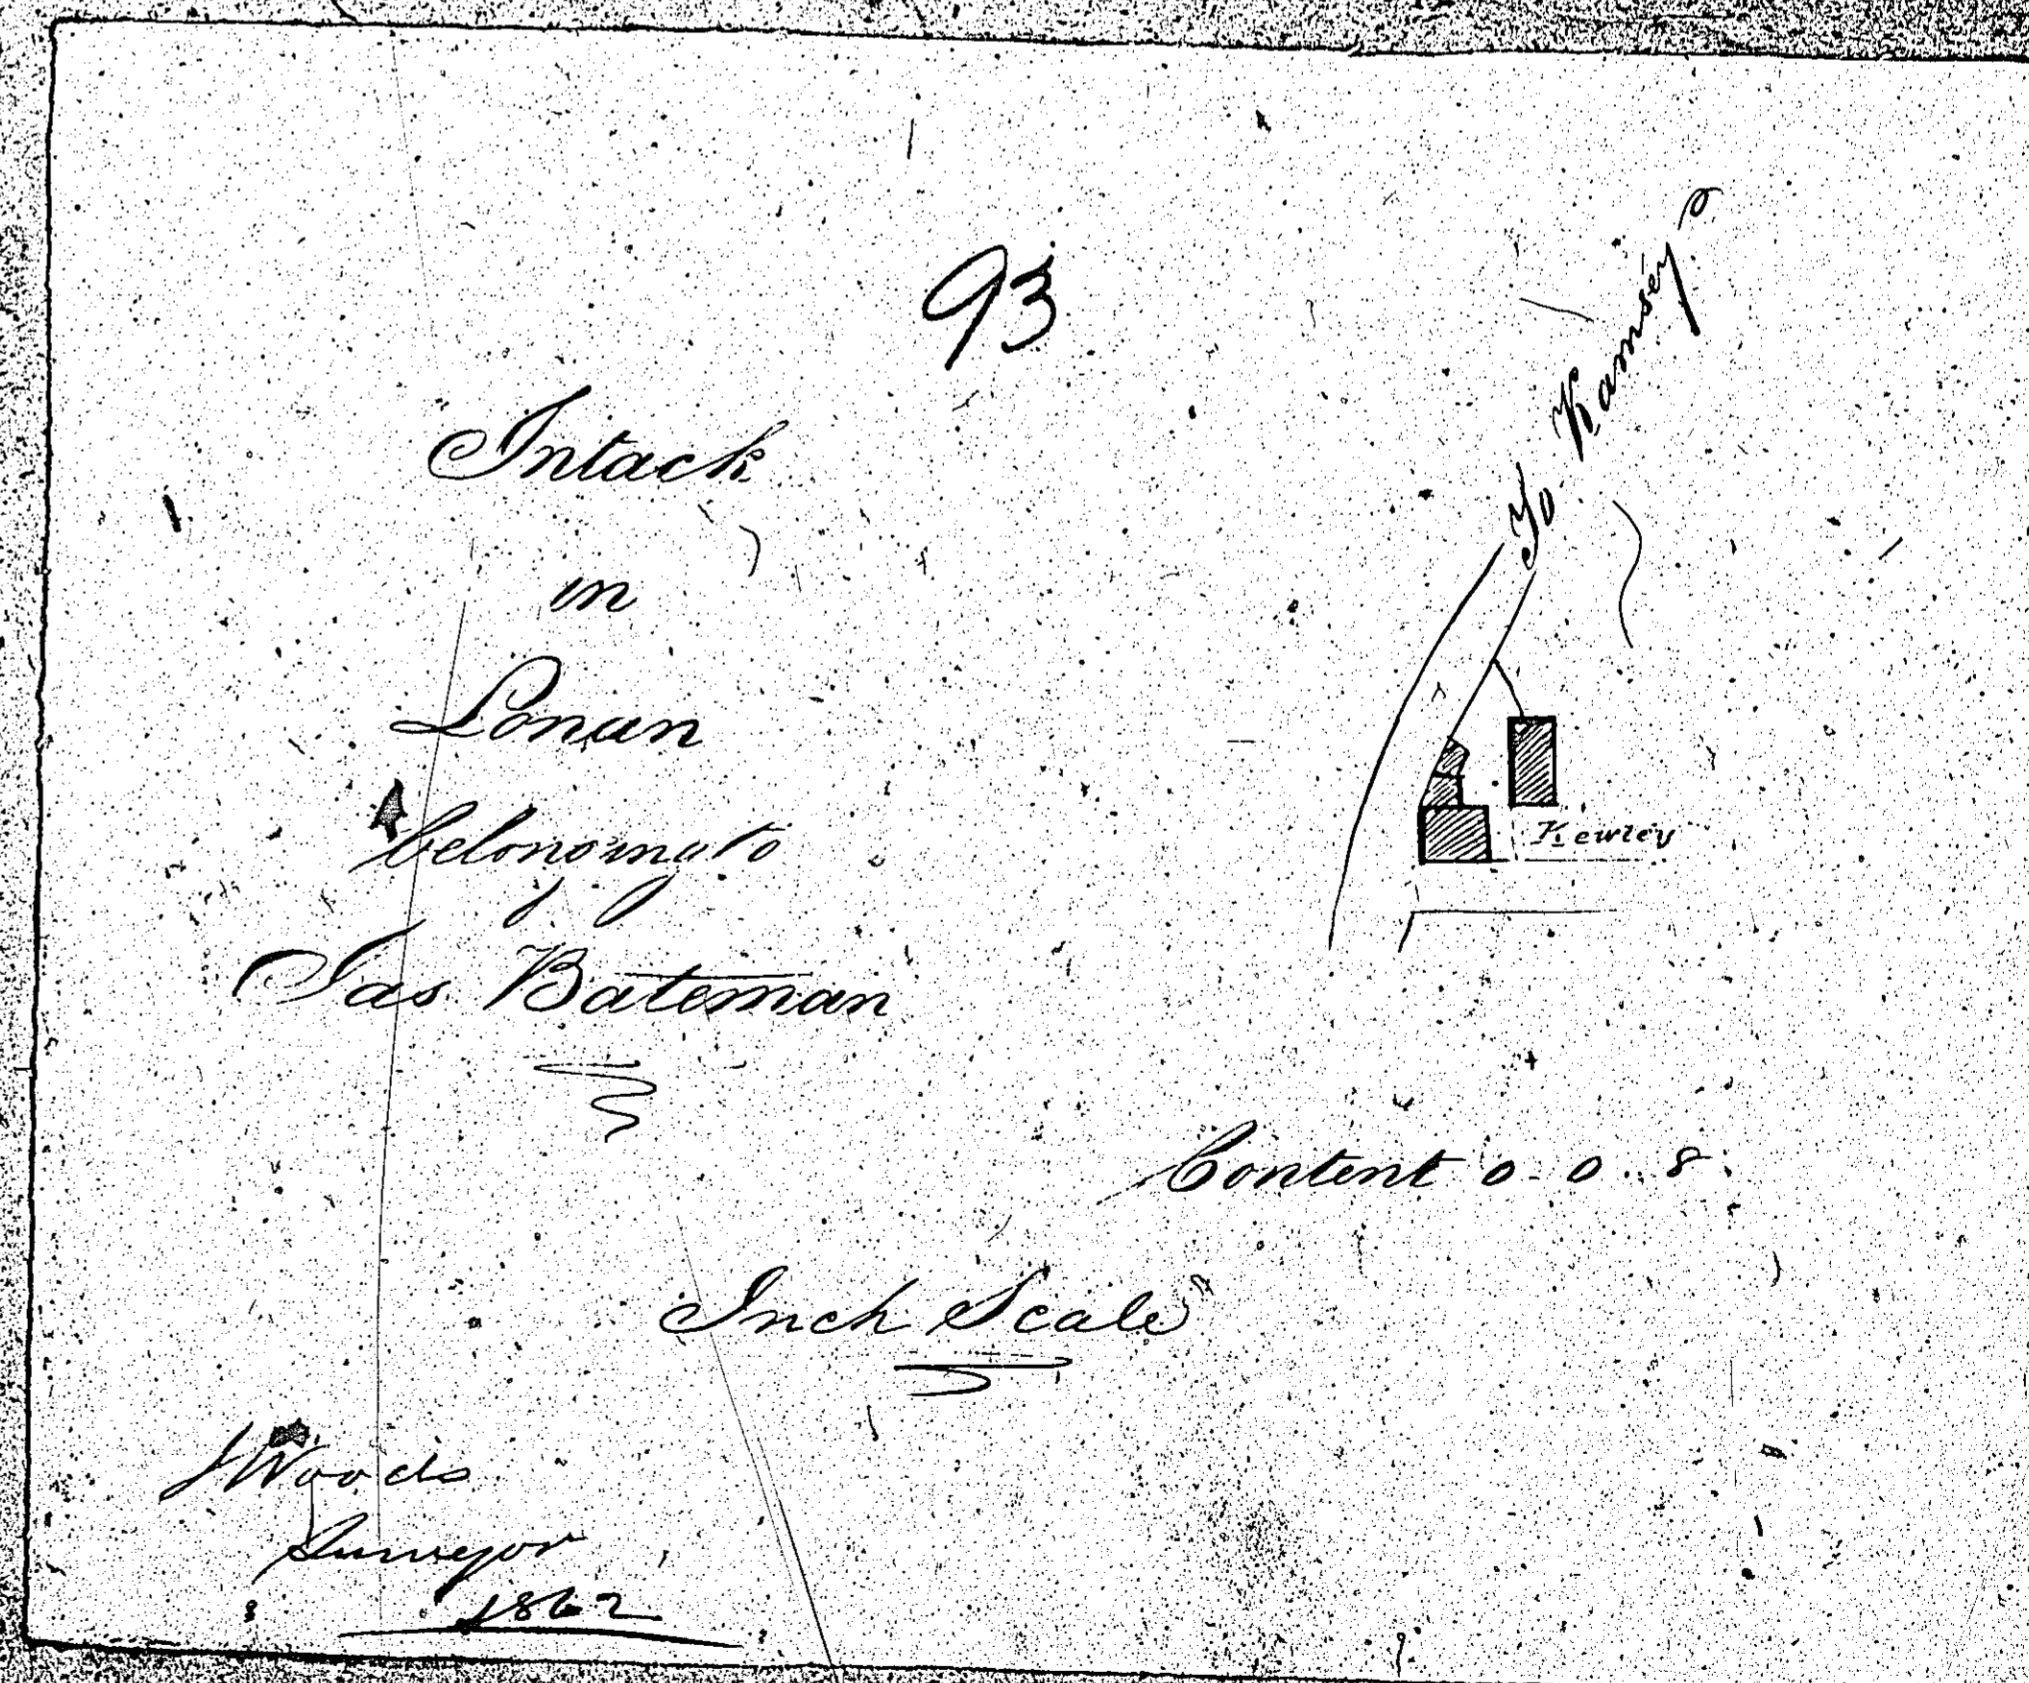 93
To Ramsey
Intack
in
Lonan
belonging to
Jas Bateman
Kewley
Content 0 - 0 .. 8
Inch Scale
J Woods
Surveyor
1862